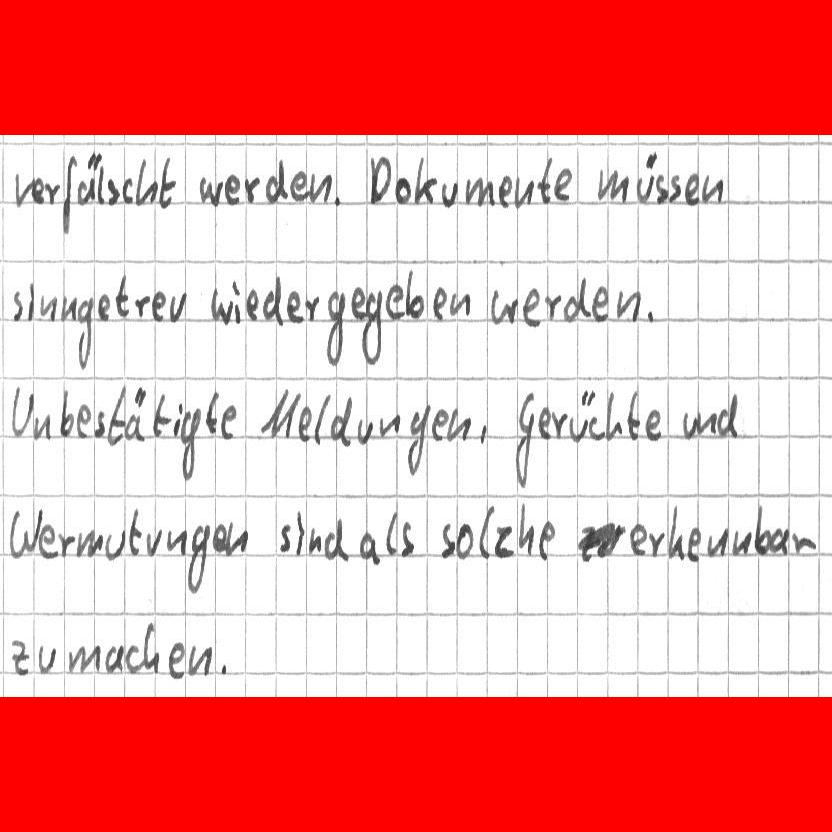 verfälscht werden. Dokumente müssen
sinngetreu wiedergegeben werden.
Unbestätigte Meldungen, Gerüchte und
Wermutungen sind als solche erkennbar
zu machen.